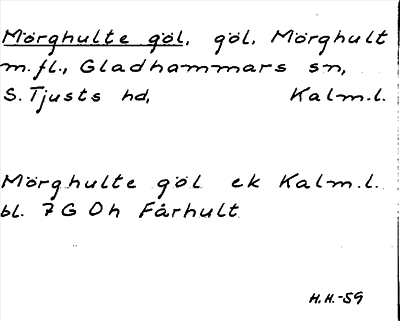 Mörghulte göl, göl, Mörghult
m.fl., Gladhammars sn,
S. Tjusts hd, Kalm.l.
Mörghulte göl ek Kalm.l.
bl. 7G Oh Fårhult
H.H.-59